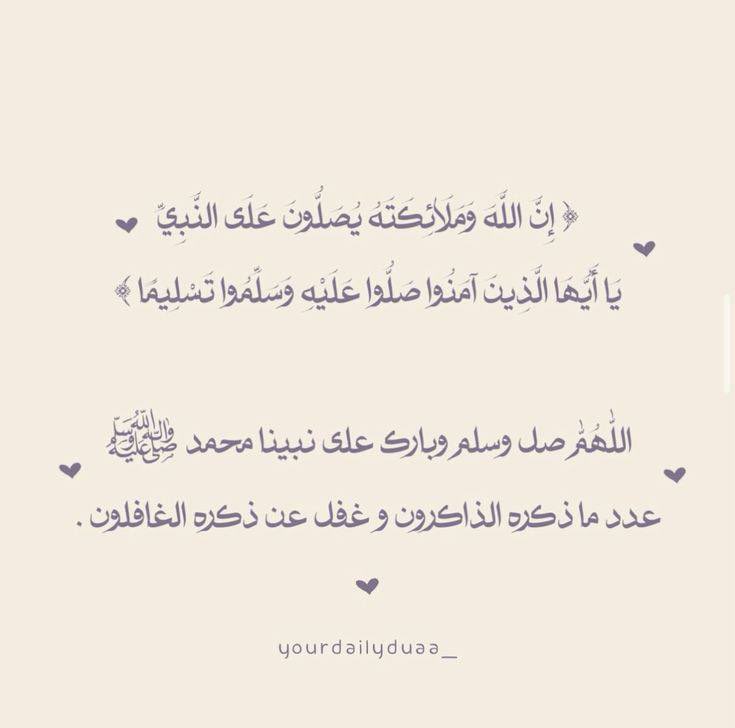 ﴿ إِنَّ اللَّهَ وَمَلَائِكَتَهُ يُصَلُّونَ عَلَى النَّبِيِّ
يَا أَيُّهَا الَّذِينَ آمَنُوا صَلُّوا عَلَيْهِ وَسَلِّمُوا تَسْلِيمًا ﴾
اللَّهُمَّ صل وسلم وبارك على نبينا محمد ﷺ
عدد ما ذكره الذاكرون و غفل عن ذكره الغافلون .
yourdailyduaa_